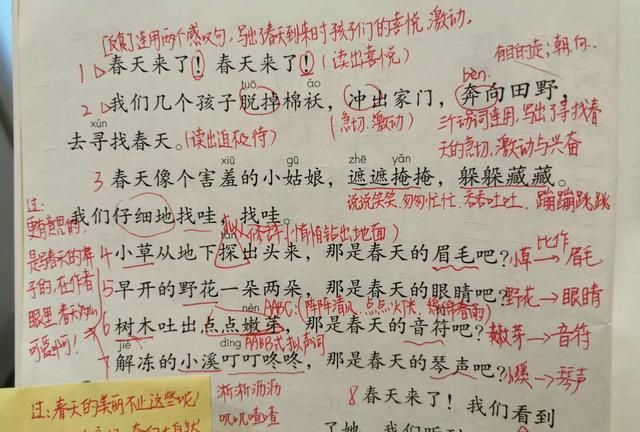 [反复]连用两个感叹句,写出了春天到来时孩子们的喜悦、激动。
1 春天来了!春天来了!(读出喜悦)
有目的走;朝、向…
tuō ǎo bèn
2 我们几个孩子脱掉棉袄,冲出家门,奔向田野,
(急切、激动) 三个动词连用,写出了寻找春
xún
去寻找春天。(读出迫不及待)
天的急切、激动与兴奋
xiū gū zhē yǎn
3 春天像个害羞的小姑娘,遮遮掩掩,躲躲藏藏。
说说笑笑、匆匆忙忙、吞吞吐吐、蹦蹦跳跳
我们仔细地找哇,找哇。
(悄悄钻出地面)
4 小草从地下探出头来,那是春天的眉毛吧?
小草 比作→眉毛
5 早开的野花一朵两朵,那是春天的眼睛吧?
野花→眼睛
nèn
AABC(阵阵清风、点点灯光
6 树木吐出点点嫩芽,那是春天的音符吧?
嫩芽→音符
jiě dīng AABB式拟声词
7 解冻的小溪叮叮咚咚,那是春天的琴声吧?
小溪→琴声
淅淅沥沥
叽叽喳喳
8 春天来了!我们看到
了她,我们听到
过:
更有意思的
是春天的
子的,在作者
眼里,春天
可爱
过:春天的美丽不止这些呢!